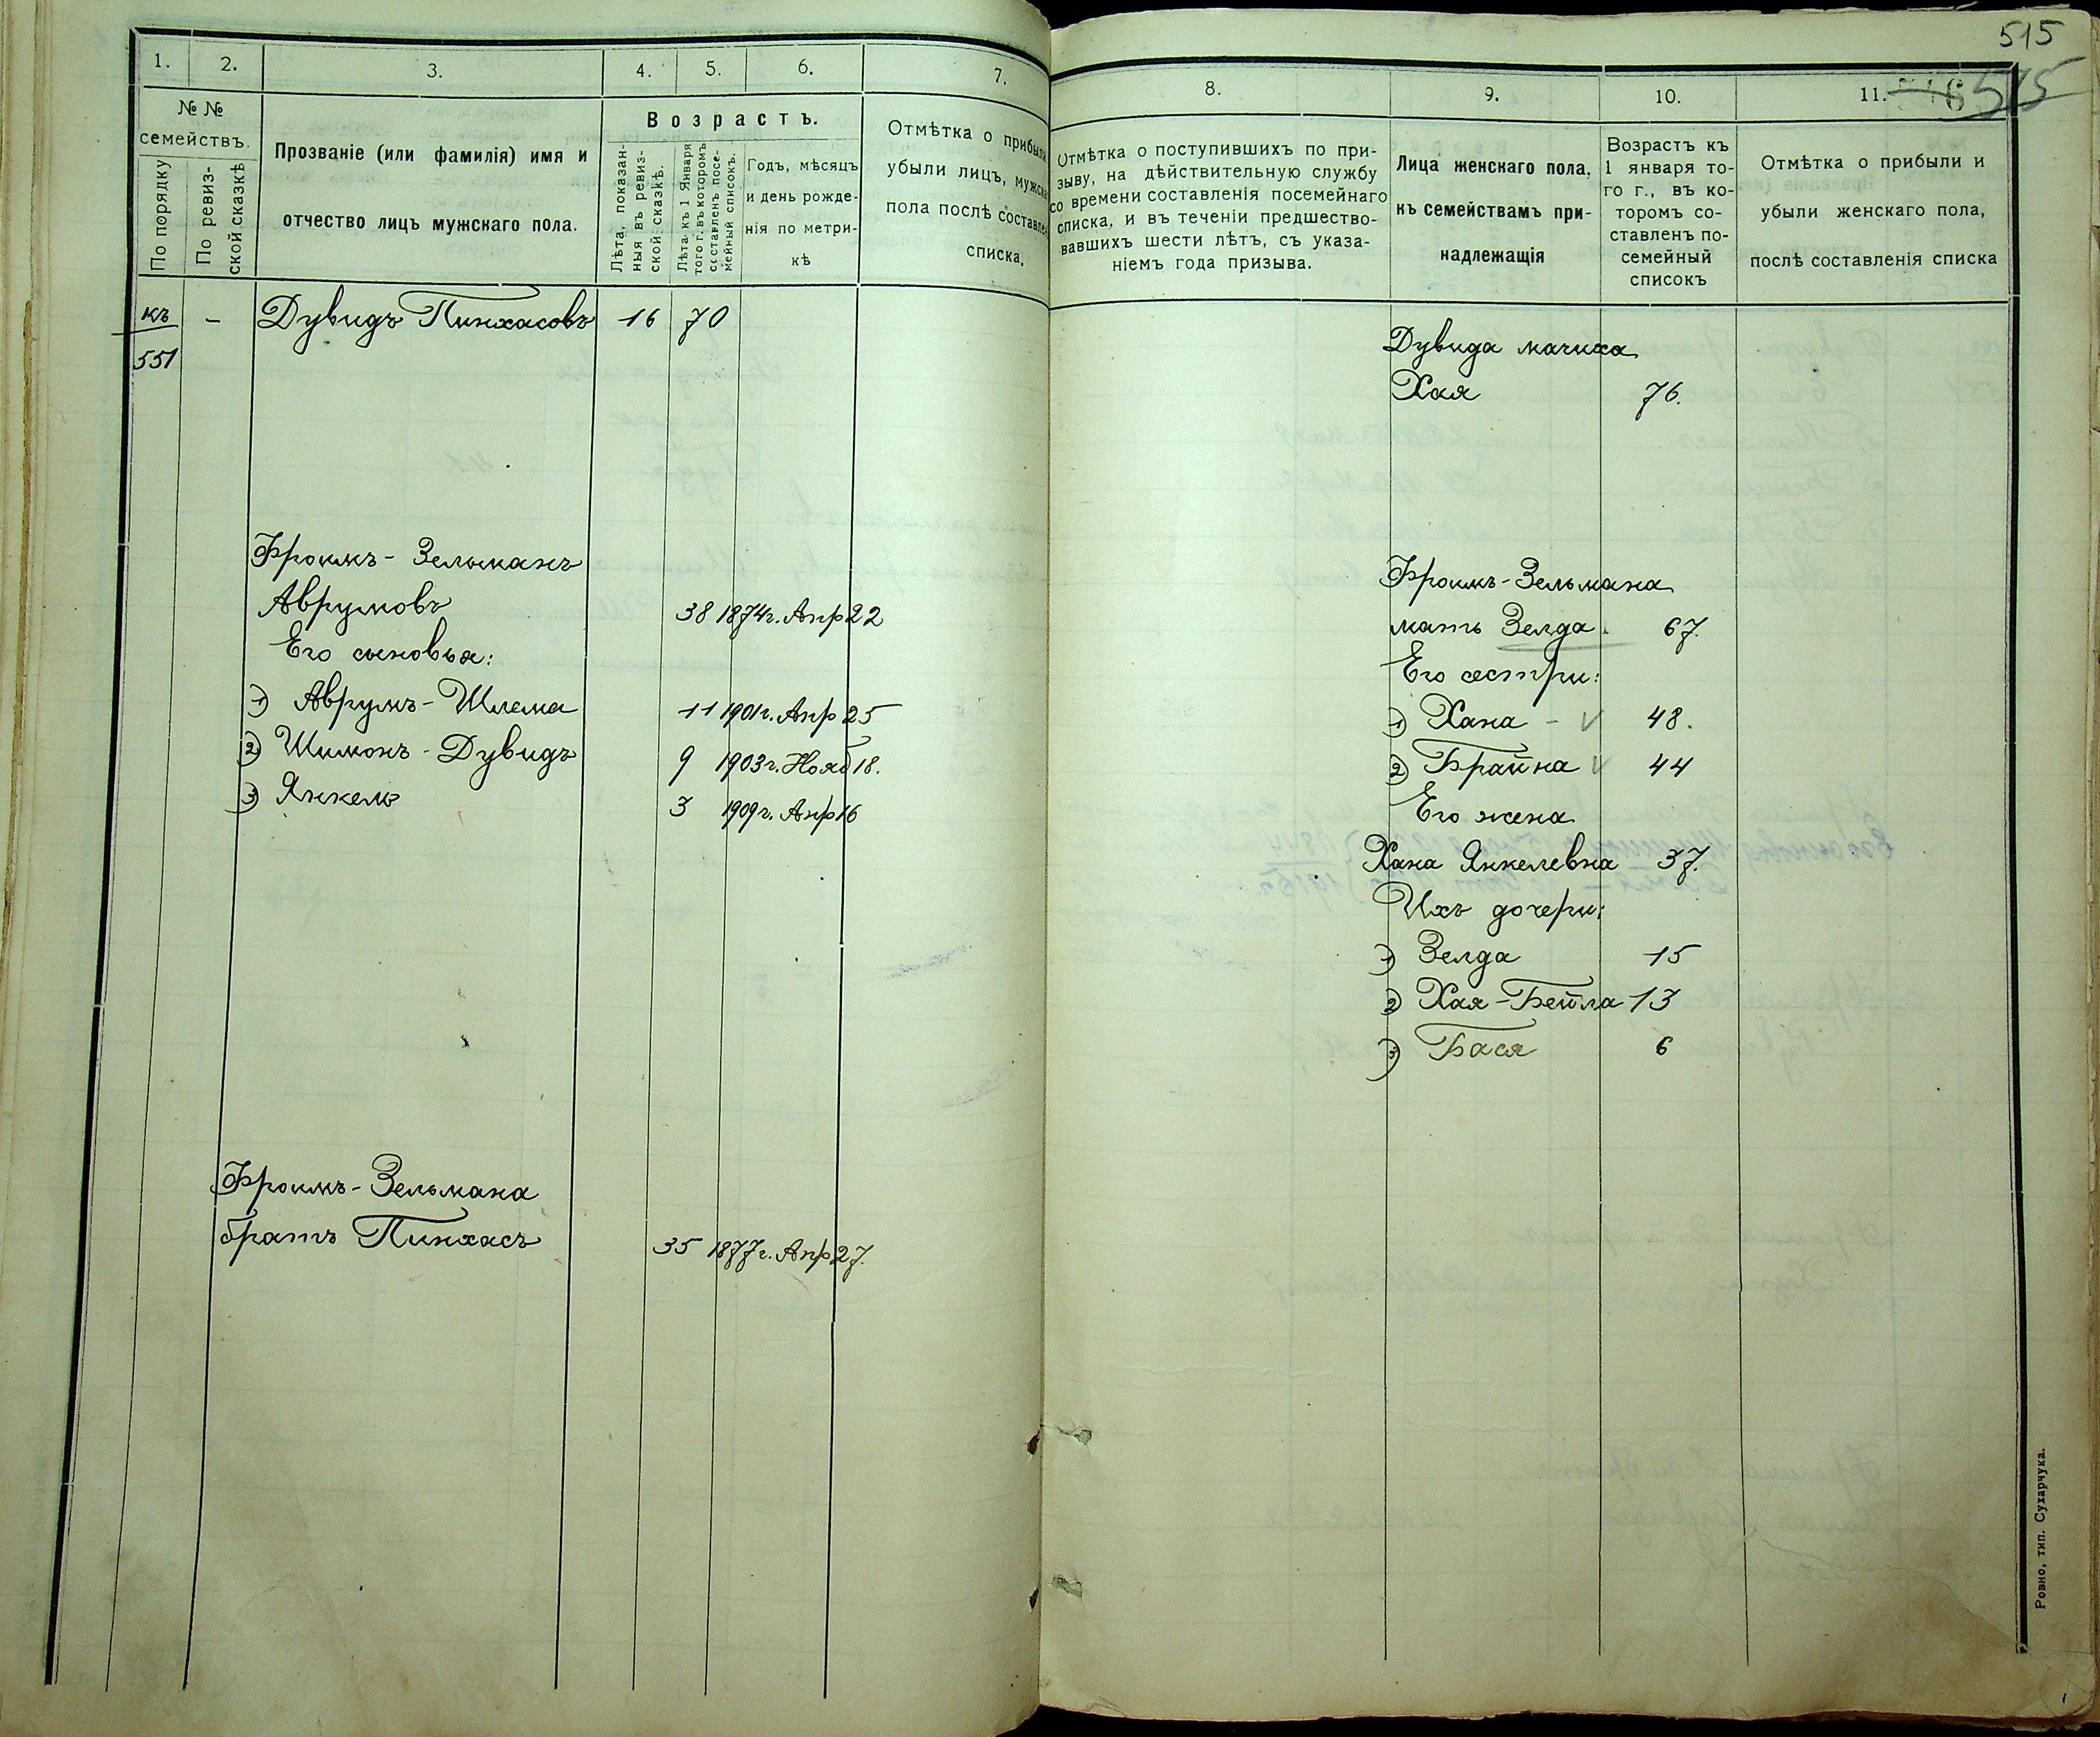 515
515
1.
2.
3.
4.
5.
6.
7.
№ №
семействъ.
По порядку
По ревиз-
ской сказкѣ
Прозваніе (или фамилія) имя и
отчество лицъ мужскаго пола.
Возрастъ.
Лѣта, показан-
ныя въ ревиз-
ской сказкѣ.
Лѣта къ 1 Января
того г. въ которомъ
составленъ посе-
мейный списокъ.
Годъ, мѣсяцъ
и день рожде-
нія по метри-
кѣ
Отмѣтка о прибыли
убыли лицъ, мужска
пола послѣ составле
списка.
къ
551
— Дувидъ Пинхасовъ 16 70
Фроимъ - Зельманъ
Аврумовъ 38 1874г. Апр 22
Его сыновья:
1) Аврумъ - Шлема 11 1901г. Апр 25
2) Шимонъ - Дувидъ 9 1903г. Нояб 18.
3) Янкель 3 1909г. Апр 16
Фроимъ - Зельмана
братъ Пинхасъ 35 1877г. Апр 27.
8.
9.
10.
11.
Отмѣтка о поступившихъ по при-
зыву, на дѣйствительную службу
со времени составленія посемейнаго
списка, и въ теченіи предшество-
вавшихъ шести лѣтъ, съ указа-
ніемъ года призыва.
Лица женскаго пола,
къ семействамъ при-
надлежащія
Возрастъ къ
1 января то-
го г., въ ко-
торомъ со-
ставленъ по-
семейный
списокъ
Отмѣтка о прибыли и
убыли женскаго пола,
послѣ составленія списка
Дувида мачиха
Хая 76.
Фроимъ - Зельмана
мать Зелда. 67.
Его сестри:
1) Хана - V 48.
2) Брайна V 44
Его жена
Хана Янкелевна 37.
Ихъ дочери:
1) Зелда 15
2) Хая - Бейла 13
3) Бася 6
Ровно, тип. Сухарчука.